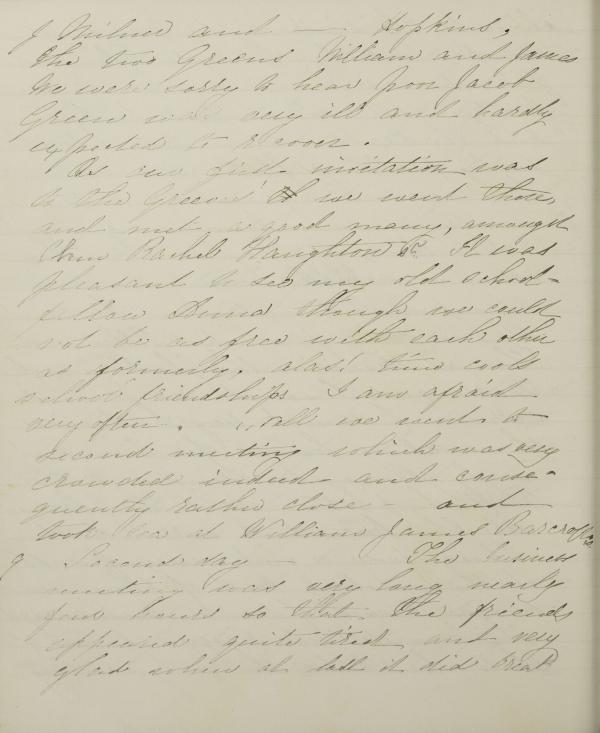 J Milner and — Hopkins,
the two Greens William and James
We were sorry to hear poor Jacob
Green was very ill and hardly
expected to recover.
As our first invitation was
to the Greens' we went there,
and met a good many, amongst
them Rachel Haughton Sr. It was
pleasant to see my old school-
fellow Anna though we could
not be as free with each other
as formerly, alas! time cools
school friendships I am afraid
very often. Well we went to
second meeting which was very
crowded indeed and conse-
quently rather close - and
took tea at William James Barcrofts
9 Second day — The business
meeting was very long nearly
four hours so that the friends
appeared quite tired and very
glad when at last it did break